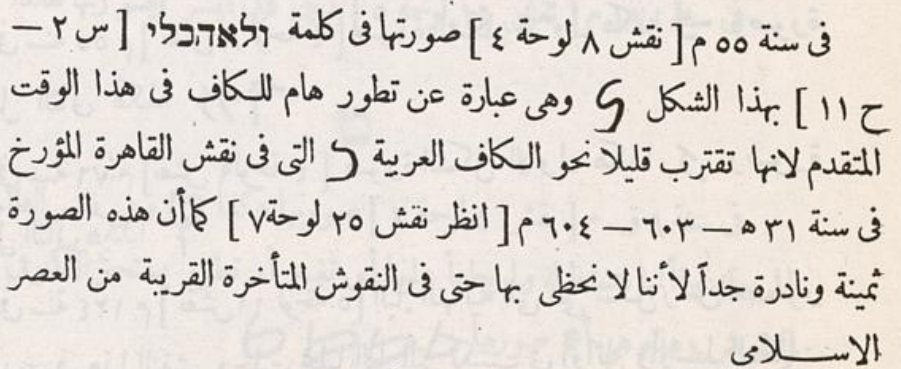 فى سنة ٥٥ م [ نقش ٨ لوحة ٤ ] صورتها فى كلمة ולאהכלי [ س ٢ —
ح ١١ ] بهذا الشكل وهى عبارة عن تطور هام للكاف فى هذا الوقت
المتقدم لانها تقترب قليلا نحو الكاف العربية التى فى نقش القاهرة المؤرخ
فى سنة ٣١ ه — ٦٠٣ — ٦٠٤ م [ انظر نقش ٢٥ لوحة ٧ ] كما أن هذه الصورة
ثمينة ونادرة جداً لأننا لا نحظى بها حتى فى النقوش المتأخرة القريبة من العصر
الاسلامى